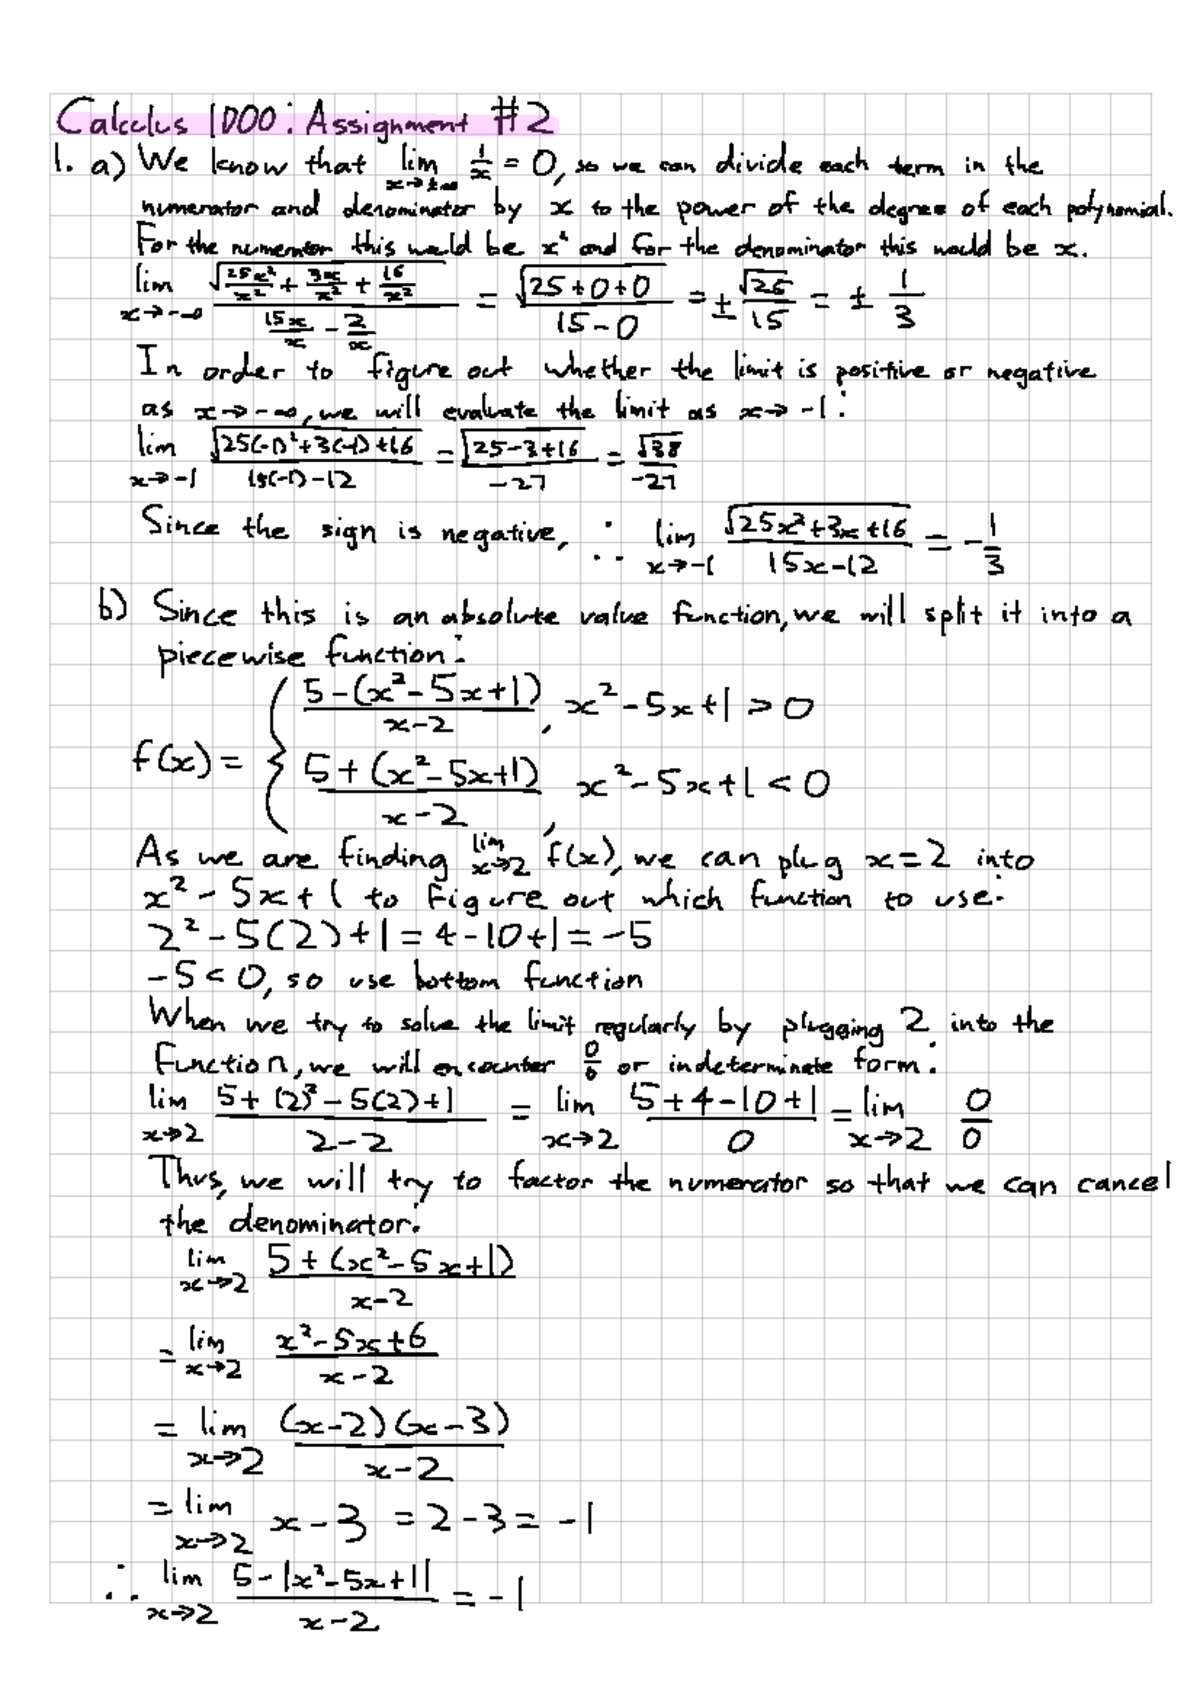 Calculus 1000: Assignment #2
1. a) We know that lim x→±∞ 1/x = 0, so we can divide each term in the
numerator and denominator by x to the power of the degree of each polynomial.
For the numerator this would be x² and for the denominator this would be x.
lim x→-∞ √(25x²/x² + 3x/x² + 16/x²) / (15x/x - 2/x) = √(25+0+0) / (15-0) = ± √25/15 = ± 1/3
In order to figure out whether the limit is positive or negative
as x→-∞, we will evaluate the limit as x→-1:
lim x→-1 √(25(-1)²+3(-1)+16) / (15(-1)-12) = √(25-3+16) / -27 = √38 / -27
Since the sign is negative, ∴ lim x→-1 √(25x²+3x+16) / (15x-12) = -1/3
b) Since this is an absolute value function, we will split it into a
piecewise function:
f(x) = { (5-(x²-5x+1))/(x-2), x²-5x+1 > 0
(5+(x²-5x+1))/(x-2), x²-5x+1 < 0
As we are finding lim x→2 f(x), we can plug x=2 into
x²-5x+1 to figure out which function to use:
2²-5(2)+1 = 4-10+1 = -5
-5<0, so use bottom function
When we try to solve the limit regularly by plugging 2 into the
function, we will encounter 0/0 or indeterminate form:
lim x→2 (5+(2)²-5(2)+1)/(2-2) = lim x→2 (5+4-10+1)/0 = lim x→2 0/0
Thus, we will try to factor the numerator so that we can cancel
the denominator:
lim x→2 (5+(x²-5x+1))/(x-2)
= lim x→2 (x²-5x+6)/(x-2)
= lim x→2 (x-2)(x-3)/(x-2)
= lim x→2 x-3 = 2-3 = -1
∴ lim x→2 (5-|x²-5x+1|)/(x-2) = -1